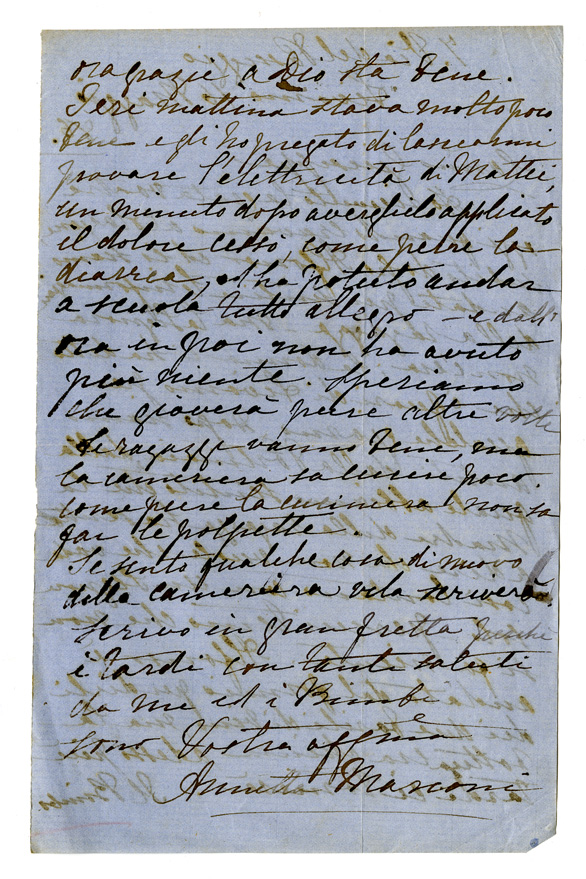 ora grazie a Dio sta bene.
Ieri mattina stava molto poco
bene e gli ho pregato di lasciarmi
provare l'elettricità di Mattei,
un minuto dopo averglielo applicato
il dolore cessò, come pure la
diarrea, ed ha potuto andar
a scuola tutto allegro – e dall'
ora in poi non ha avuto
più niente. Speriamo
che gioverà pure altre volte
Le ragazze vanno bene, ma
la cameriera sa cucire poco.
come pure la cuciniera non sa
far le polpette.
Se sento qualche cosa di nuovo
della cameriera vela scriverà.
Scrivo in gran fretta perchè
è tardi con tanti saluti
da me ed i Bimbi
sono Vostra affma
Annetta Marconi